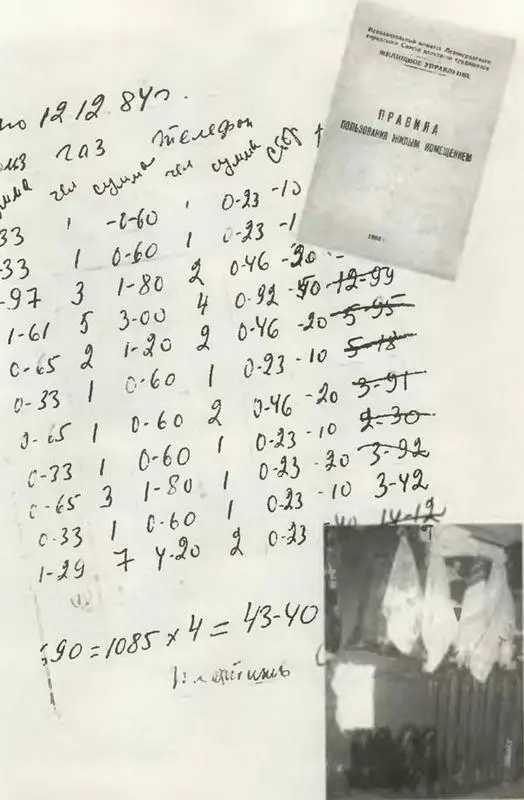 Исполнительный комитет Ленинградского
городского Совета депутатов трудящихся
ЖИЛИЩНОЕ УПРАВЛЕНИЕ
ПРАВИЛА
ПОЛЬЗОВАНИЯ ЖИЛЫМ ПОМЕЩЕНИЕМ
по 12.12.84г.
газ телефон
мма чел сумма чел сумма
33 1 -0-60 1 0-23 -10
-33 1 0-60 1 0-23 -1
-97 3 1-80 2 0-46 -20
1-61 5 3-00 4 0-92 12-99
0-65 2 1-20 2 0-46 -20 5-95
0-33 1 0-60 1 0-23 -10 5-18
0-65 1 0-60 2 0-46 -20 3-91
0-33 1 0-60 1 0-23 -10 2-30
0-65 3 1-80 1 0-23 -20 3-92
0-33 1 0-60 1 0-23 -10 3-42
1-29 7 4-20 2 0-23 14-12
90=1085×4=43-40